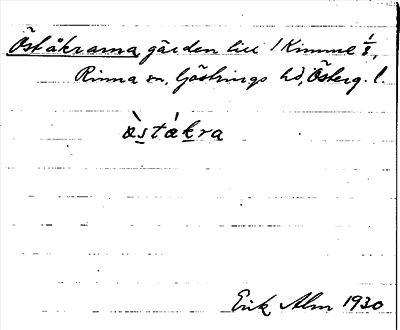 Öståkrarna, gärden till 1 Kimme 1/8,
Rinna sn, Göstrings hd, Österg. l.
æ̀stákra
Erik Alm 1930